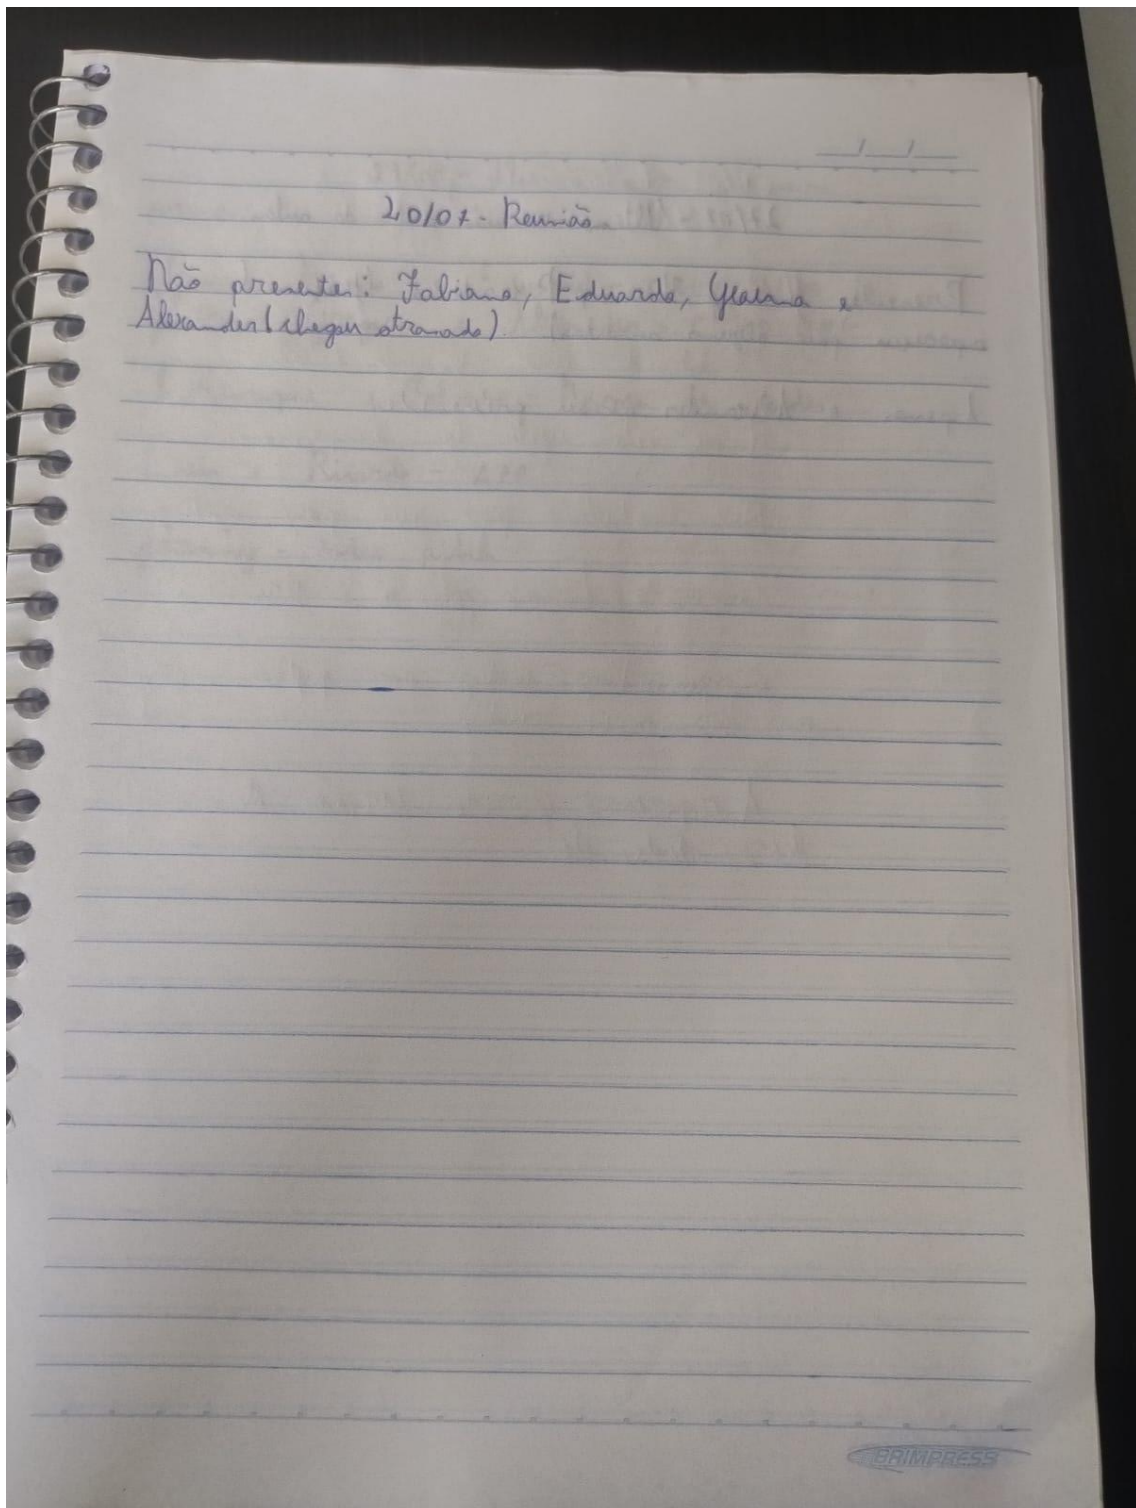 20/07 - Reunião
Não presentes: Fabiana, Eduarda, e
Alexander (chegou atrasado).
BRIMPRESS